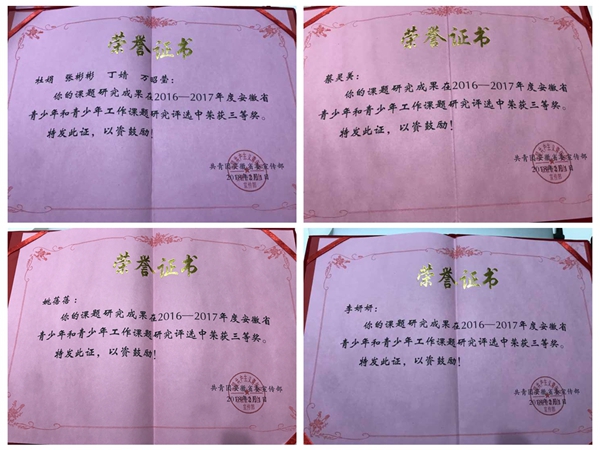 荣誉证书
杜娟 张彬彬 丁婧 万昭莹：
你的课题研究成果在2016—2017年度安徽省
青少年和青少年工作课题研究评选中荣获三等奖。
特发此证，以资鼓励！
共青团安徽省委宣传部
荣誉证书
蔡灵美：
你的课题研究成果在2016—2017年度安徽省
青少年和青少年工作课题研究评选中荣获三等奖。
特发此证，以资鼓励！
共青团安徽省委宣传部
荣誉证书
姚蓓蓓：
你的课题研究成果在2016—2017年度安徽省
青少年和青少年工作课题研究评选中荣获三等奖。
特发此证，以资鼓励！
共青团安徽省委宣传部
荣誉证书
李妍妍：
你的课题研究成果在2016—2017年度安徽省
青少年和青少年工作课题研究评选中荣获三等奖。
特发此证，以资鼓励！
共青团安徽省委宣传部